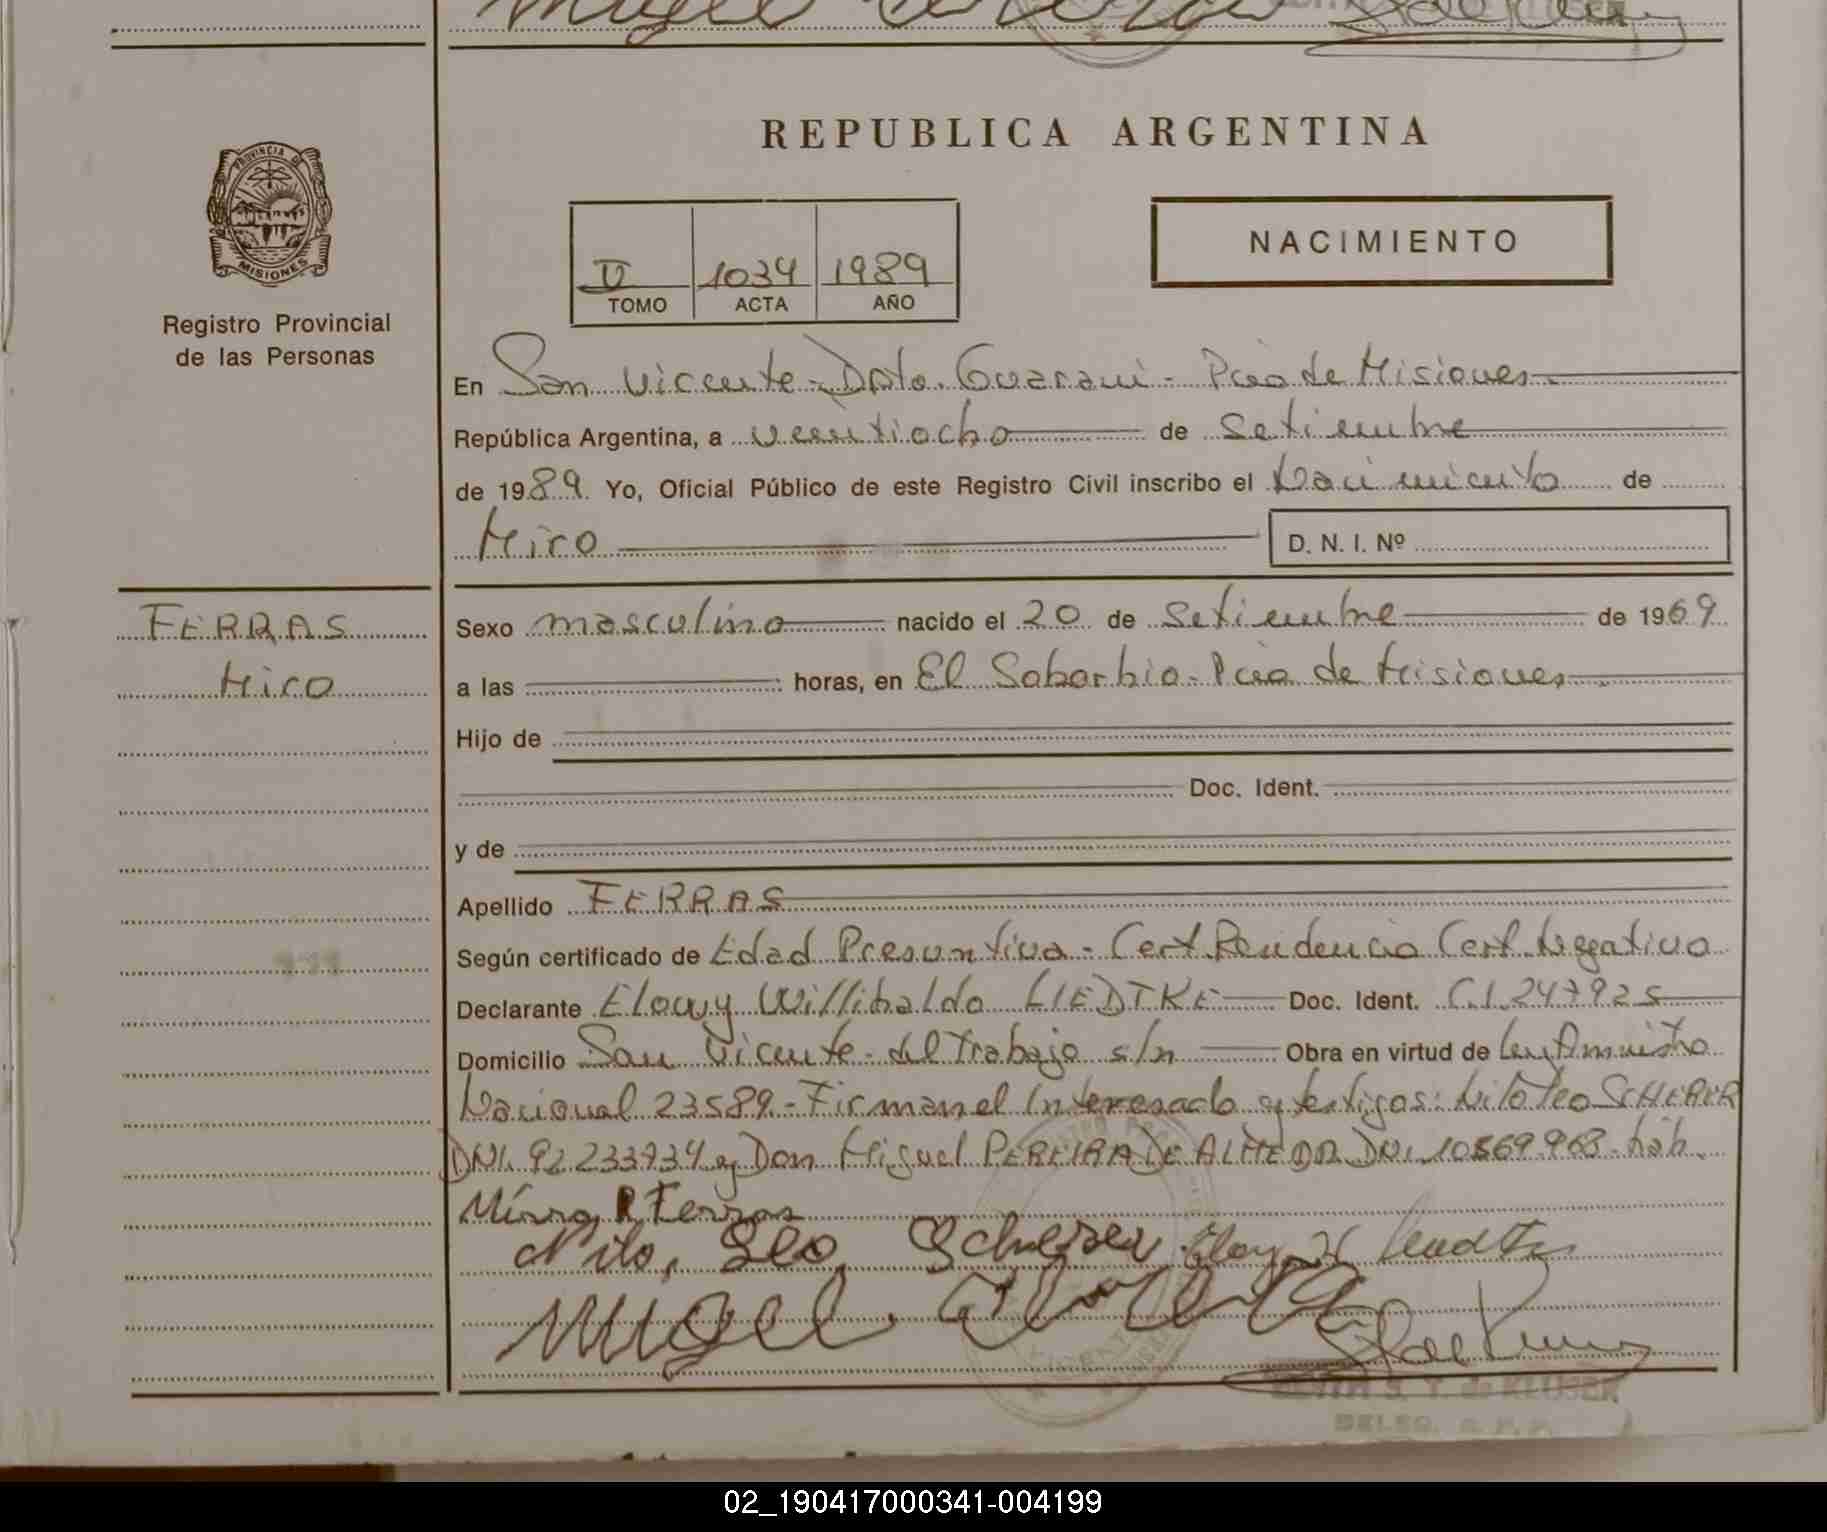 REPUBLICA ARGENTINA
PROVINCIA DE
MISIONES
Registro Provincial
de las Personas
NACIMIENTO
1034 1989
TOMO ACTA AÑO
En San Vicente - Dpto. Guarani - Pcia de Misiones
República Argentina, a veintiocho de Setiembre
de 1989. Yo, Oficial Público de este Registro Civil inscribo el Nacimiento de
Miro D. N. I. Nº
FERRAS
Miro
Sexo masculino nacido el 20 de Setiembre de 1969
a las horas, en El Soborbio - Pcia de Misiones
Hijo de
Doc. Ident.
y de
Apellido FERRAS
Según certificado de Edad Presuntiva - Cert. Residencia Cert. Negativo
Declarante Elowy Willibaldo LIEDTKE Doc. Ident. C.I. 247925
Domicilio San Vicente - del Trabajo s/n Obra en virtud de Ley Amnistia
Nacional 23589. - Firman el Interesado y testigos: Nilo Leo SCHERER
DNI. 92.233934 y Don Miguel PEREIRA DE ALMEDA DNI. 10869968 - háb.
Ferras
Nilo, Leo Scherer
Miguel
S. T. de KLUSER
02_190417000341-004199